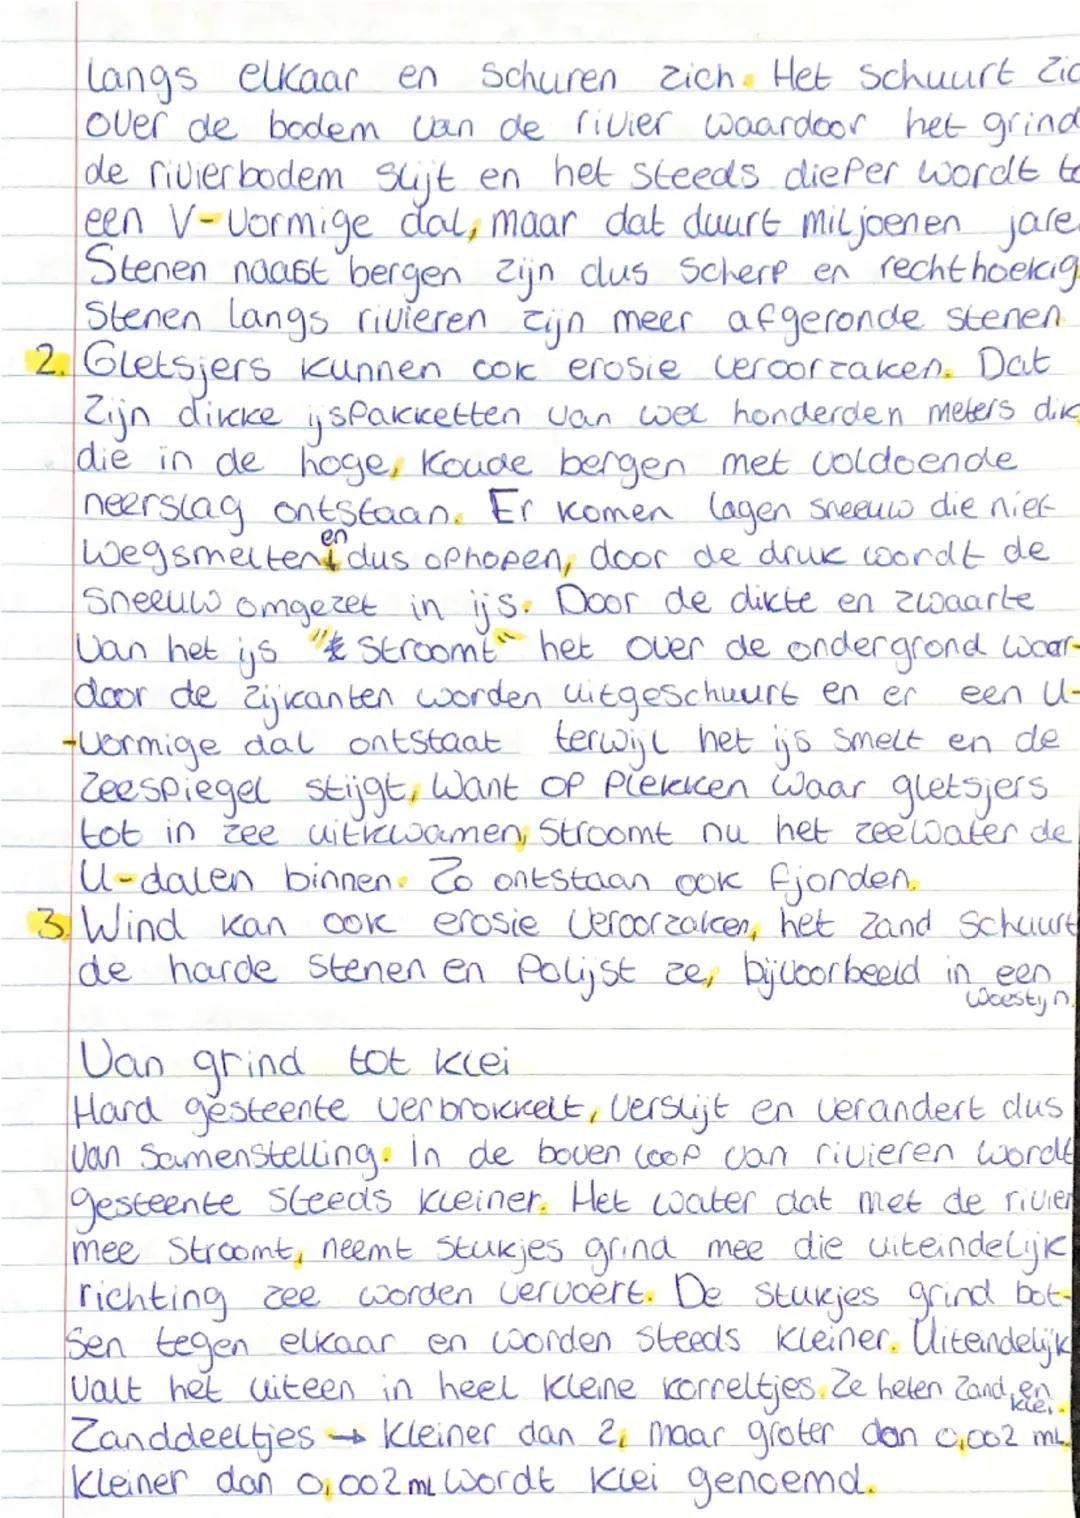 langs elkaar en schuren zich. Het schuurt zic
over de bodem van de rivier waardoor het grind
de rivierbodem slijt en het steeds dieper wordt to
een V-vormige dal, maar dat duurt miljoenen jare
Stenen naast bergen zijn dus scherp en rechthoekig.
Stenen langs rivieren zijn meer afgeronde stenen
2. Gletsjers kunnen ook erosie veroorzaken. Dat
zijn dikke ijspakketten van wel honderden meters dik
die in de hoge, koude bergen met voldoende
neerslag ontstaan. Er komen lagen sneeuw die niet
wegsmelten en dus ophopen, door de druk wordt de
sneeuw omgezet in ijs. Door de dikte en zwaarte
van het ijs "stroomt" het over de ondergrond waar-
door de zijkanten worden uitgeschuurt en er een U-
-vormige dal ontstaat terwijl het ijs smelt en de
zeespiegel stijgt, want op plekken waar gletsjers
tot in zee uitkwamen, stroomt nu het zeewater de
U-dalen binnen. Zo ontstaan ook fjorden.
3. Wind kan ook erosie veroorzaken, het zand schuurt
de harde stenen en polijst ze, bijvoorbeeld in een
woestijn.
Van grind tot klei
Hard gesteente verbrokkelt, verslijt en verandert dus
van samenstelling. In de bovenloop van rivieren wordt
gesteente steeds kleiner. Het water dat met de rivier
mee stroomt, neemt stukjes grind mee die uiteindelijk
richting zee worden vervoert. De stukjes grind bot-
sen tegen elkaar en worden steeds kleiner. Uiteindelijk
valt het uiteen in heel kleine korreltjes. Ze heten zand en
klei.
Zanddeeltjes → kleiner dan 2, maar groter dan 0,002 mL
kleiner dan 0,002 mL wordt klei genoemd.